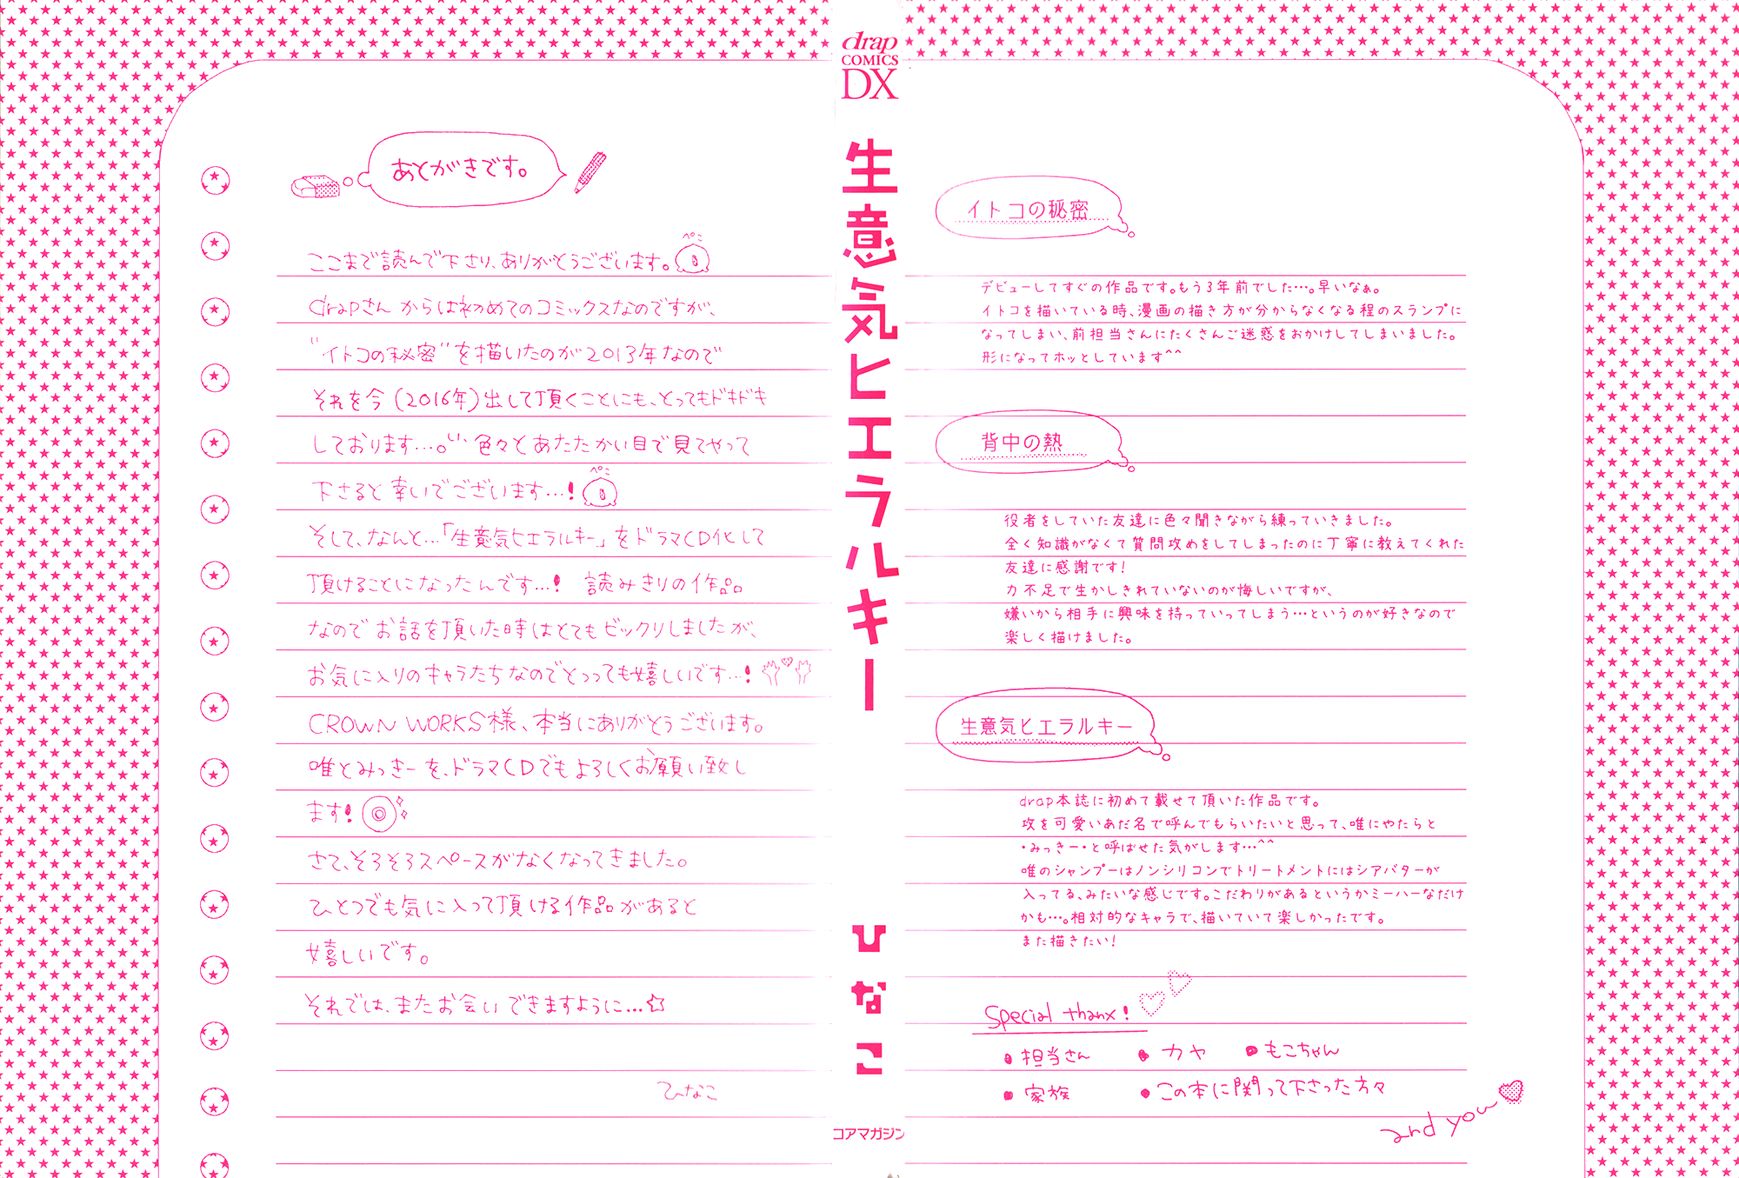 あとがきです。
ぺこ
ここまで読んで下さり、ありがとうございます。
drapさんからは初めてのコミックスなのですが、
"イトコの秘密"を描いたのが2013年なので
それを今(2016年)出して頂くことにも、とってもドキドキ
しております…。色々とあたたかい目で見てやって
ぺこ
下さると幸いでございます…!
そして、なんと…「生意気ヒエラルキー」をドラマCD化して
頂けることになったんです…! 読みきりの作品
なのでお話を頂いた時はとてもビックリしましたが、
お気に入りのキャラたちなのでとっても嬉しいです…!
CROWN WORKS様、本当にありがとうございます。
唯とみっきーを、ドラマCDでもよろしくお願い致し
ます!
さて、そろそろスペースがなくなってきました。
ひとつでも気に入って頂ける作品があると
嬉しいです。
それでは、またお会いできますように…☆
ひなこ
drap
COMICS
DX
生意気ヒエラルキー
ひなこ
コアマガジン
イトコの秘密
デビューしてすぐの作品です。もう3年前でした…。早いなぁ。
イトコを描いている時、漫画の描き方が分からなくなる程のスランプに
なってしまい、前担当さんにたくさんご迷惑をおかけしてしまいました。
形になってホッとしています^^
背中の熱
役者をしていた友達に色々聞きながら練っていきました。
全く知識がなくて質問攻めをしてしまったのに丁寧に教えてくれた
友達に感謝です!
力不足で生かしきれていないのが悔しいですが、
嫌いから相手に興味を持っていってしまう…というのが好きなので
楽しく描けました。
生意気ヒエラルキー
drap本誌に初めて載せて頂いた作品です。
攻を可愛いあだ名で呼んでもらいたいと思って、唯にやたらと
・みっきー・と呼ばせた気がします…^^
唯のシャンプーはノンシリコンでトリートメントにはシアバターが
入ってる、みたいな感じです。こだわりがあるというかミーハーなだけ
かも…。相対的なキャラで、描いていて楽しかったです。
また描きたい!
Special thanx!
●担当さん ●カヤ ●もこちゃん
●家族 ●この本に関って下さった方々
and you